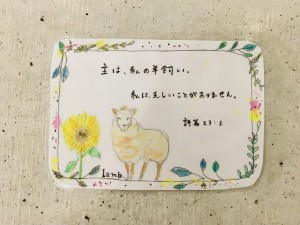 主は、私の羊飼い。
私は、乏しいことがありません。
詩篇23:1
Lamb.